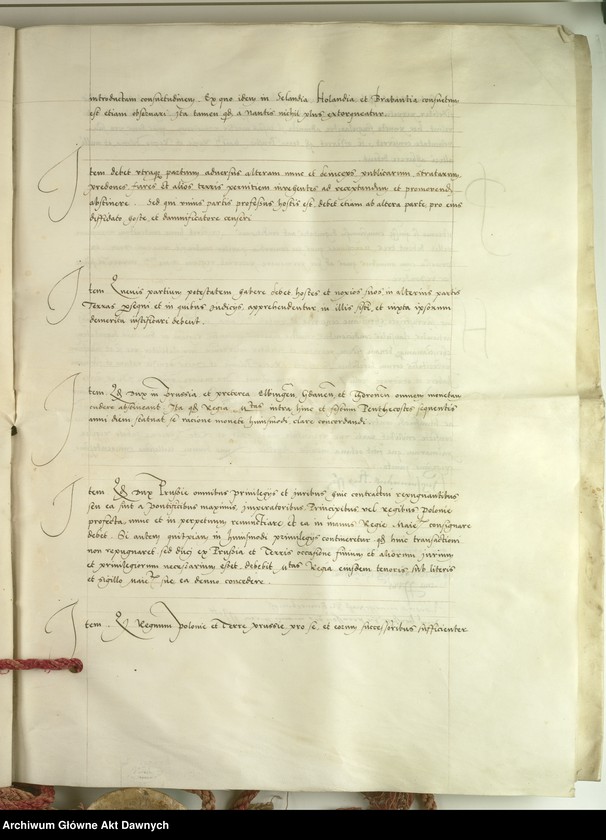 introductam consuetudinem. Ex quo idem in Selandia Holandia et Brabantia consuetum
est etiam observari Ita tamen qd a Nantis nichil plus extorqueatur.
Item debet utraque partium adversus alteram nunc et deinceps publicarum stratarum
predones fures et alios terris perniciem inferentes ad receptandum et promovendum
abstinere. Sed qui unius partis professus hostis est, debet etiam ab altera parte pro eius
diffidato hoste et damnificatore censeri
Item Quevis partium potestatem habere debet hostes et noxios suos in alterius partis
Terras persequi et in quibus Iudicijs apprehendentur in illis sisti, et iuxta ipsorum
demerita iustificari debent.
Item Qd Dux in Prussia et preterea Elbingen. Gdanen. et Thoronen omnem monetam
cudere abstineant. Ita qd Regia Mtas intra hinc et festum Penthecostes sequentis
anni diem statuat se racione monete huiusmodi clare concordandi
Item Qd Dux Prussie omnibus privilegijs et iuribus huic contractui repugnantibus
seu ea sint a Pontificibus maximis, Imperatoribus Principibus vel Regibus Polonie
profecta, nunc et in perpetuum renunctiare et ea in manus Regie Maietis consignare
debet. Si autem quitpiam in huiusmodi privilegijs contineretur qd huic transactioni
non repugnaret, sed duci ex Prussia et Terris occasione finium et aliorum iurium
et privilegiorum necessarium esset, debebit Mtas Regia eiusdem tenoris sub literis
et sigillo Maietis sue ea denuo concedere.
Item Qd Regnum Polonie et Terre Prussie pro se, et eorum successoribus sufficienter
Archiwum Główne Akt Dawnych